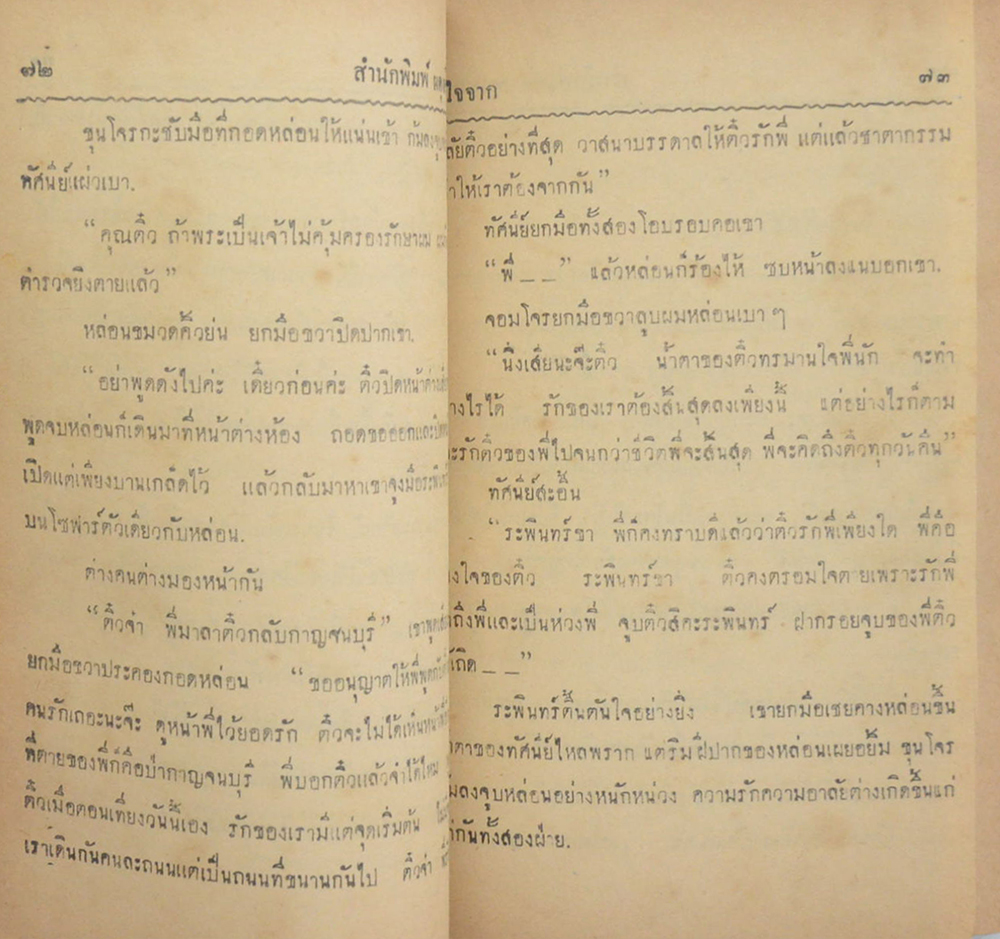 ๗๒
สำนักพิมพ์
ขุนโจรกะชับมือที่กอดหล่อนให้แน่นเข้า
ทัศนีย์แผ่วเบา.
“คุณติ๋ว ถ้าพระเป็นเจ้าไม่คุ้มครองรักษาผม
ตำรวจยิงตายแล้ว”
หล่อนขมวดคิ้วย่น ยกมือขวาปิดปากเขา.
“อย่าพูดดังไปค่ะ เดี๋ยวก่อนค่ะ ติ๋วปิดหน้าต่าง
พูดจบหล่อนก็เดินมาที่หน้าต่างห้อง ถอดขอออกและ
เปิดแต่เพียงบานเกล็ดไว้ แล้วกลับมาหาเขาจูงมือ
บนโซฟาร์ตัวเดียวกับหล่อน.
ต่างคนต่างมองหน้ากัน
“ติ๋วจ๋า พี่มาลาติ๋วกลับกาญจนบุรี”
ยกมือขวาประคองกอดหล่อน “ขออนุญาตให้พี่พูด
คนรักเถอะนะจ๊ะ ดูหน้าพี่ไว้ยอดรัก ติ๋วจะไม่ได้เห็น
ที่ตายของพี่ก็คือป่ากาญจนบุรี พี่บอกติ๋วแล้วจำได้ไหม
ติ๋วเมื่อตอนเที่ยงวันนี้เอง รักของเรามีแต่จุดเริ่มต้น
เราเดินกันคนละถนนแต่เป็นถนนที่ขนานกันไป ติ๋วจ๋า
ใจจาก
๗๓
ลัยติ๋วอย่างที่สุด วาสนาบรรดาลให้ติ๋วรักพี่ แต่แล้วชาตากรรม
ให้เราต้องจากกัน”
ทัศนีย์ยกมือทั้งสองโอบรอบคอเขา
“พี่ _ _” แล้วหล่อนก็ร้องไห้ ซบหน้าลงแนบอกเขา.
จอมโจรยกมือขวาลูบผมหล่อนเบา ๆ
“นิ่งเสียนะจ๊ะติ๋ว น้ำตาของติ๋วทรมานใจพี่นัก จะทำ
างไรได้ รักของเราต้องสิ้นสุดลงเพียงนี้ แต่อย่างไรก็ตาม
ะรักติ๋วของพี่ไปจนกว่าชีวิตพี่จะสิ้นสุด พี่จะคิดถึงติ๋วทุกวันคืน”
ทัศนีย์สะอื้น
“ระพินทร์ขา พี่ก็คงทราบดีแล้วว่าติ๋วรักพี่เพียงใด พี่คือ
งใจของติ๋ว ระพินทร์ขา ติ๋วคงตรอมใจตายเพราะรักพี่
ถึงพี่และเป็นห่วงพี่ จูบติ๋วสิคะระพินทร์ ฝากรอยจูบของพี่ติ๋ว
เถิด _ _”
ระพินทร์ตื้นตันใจอย่างยิ่ง เขายกมือเชยคางหล่อนขึ้น
ตาของทัศนีย์ไหลพราก แต่ริมฝีปากของหล่อนเผยอยิ้ม ขุนโจร
ลงจูบหล่อนอย่างหนักหน่วง ความรักความอาลัยต่างเกิดขึ้นแก่
กันทั้งสองฝ่าย.